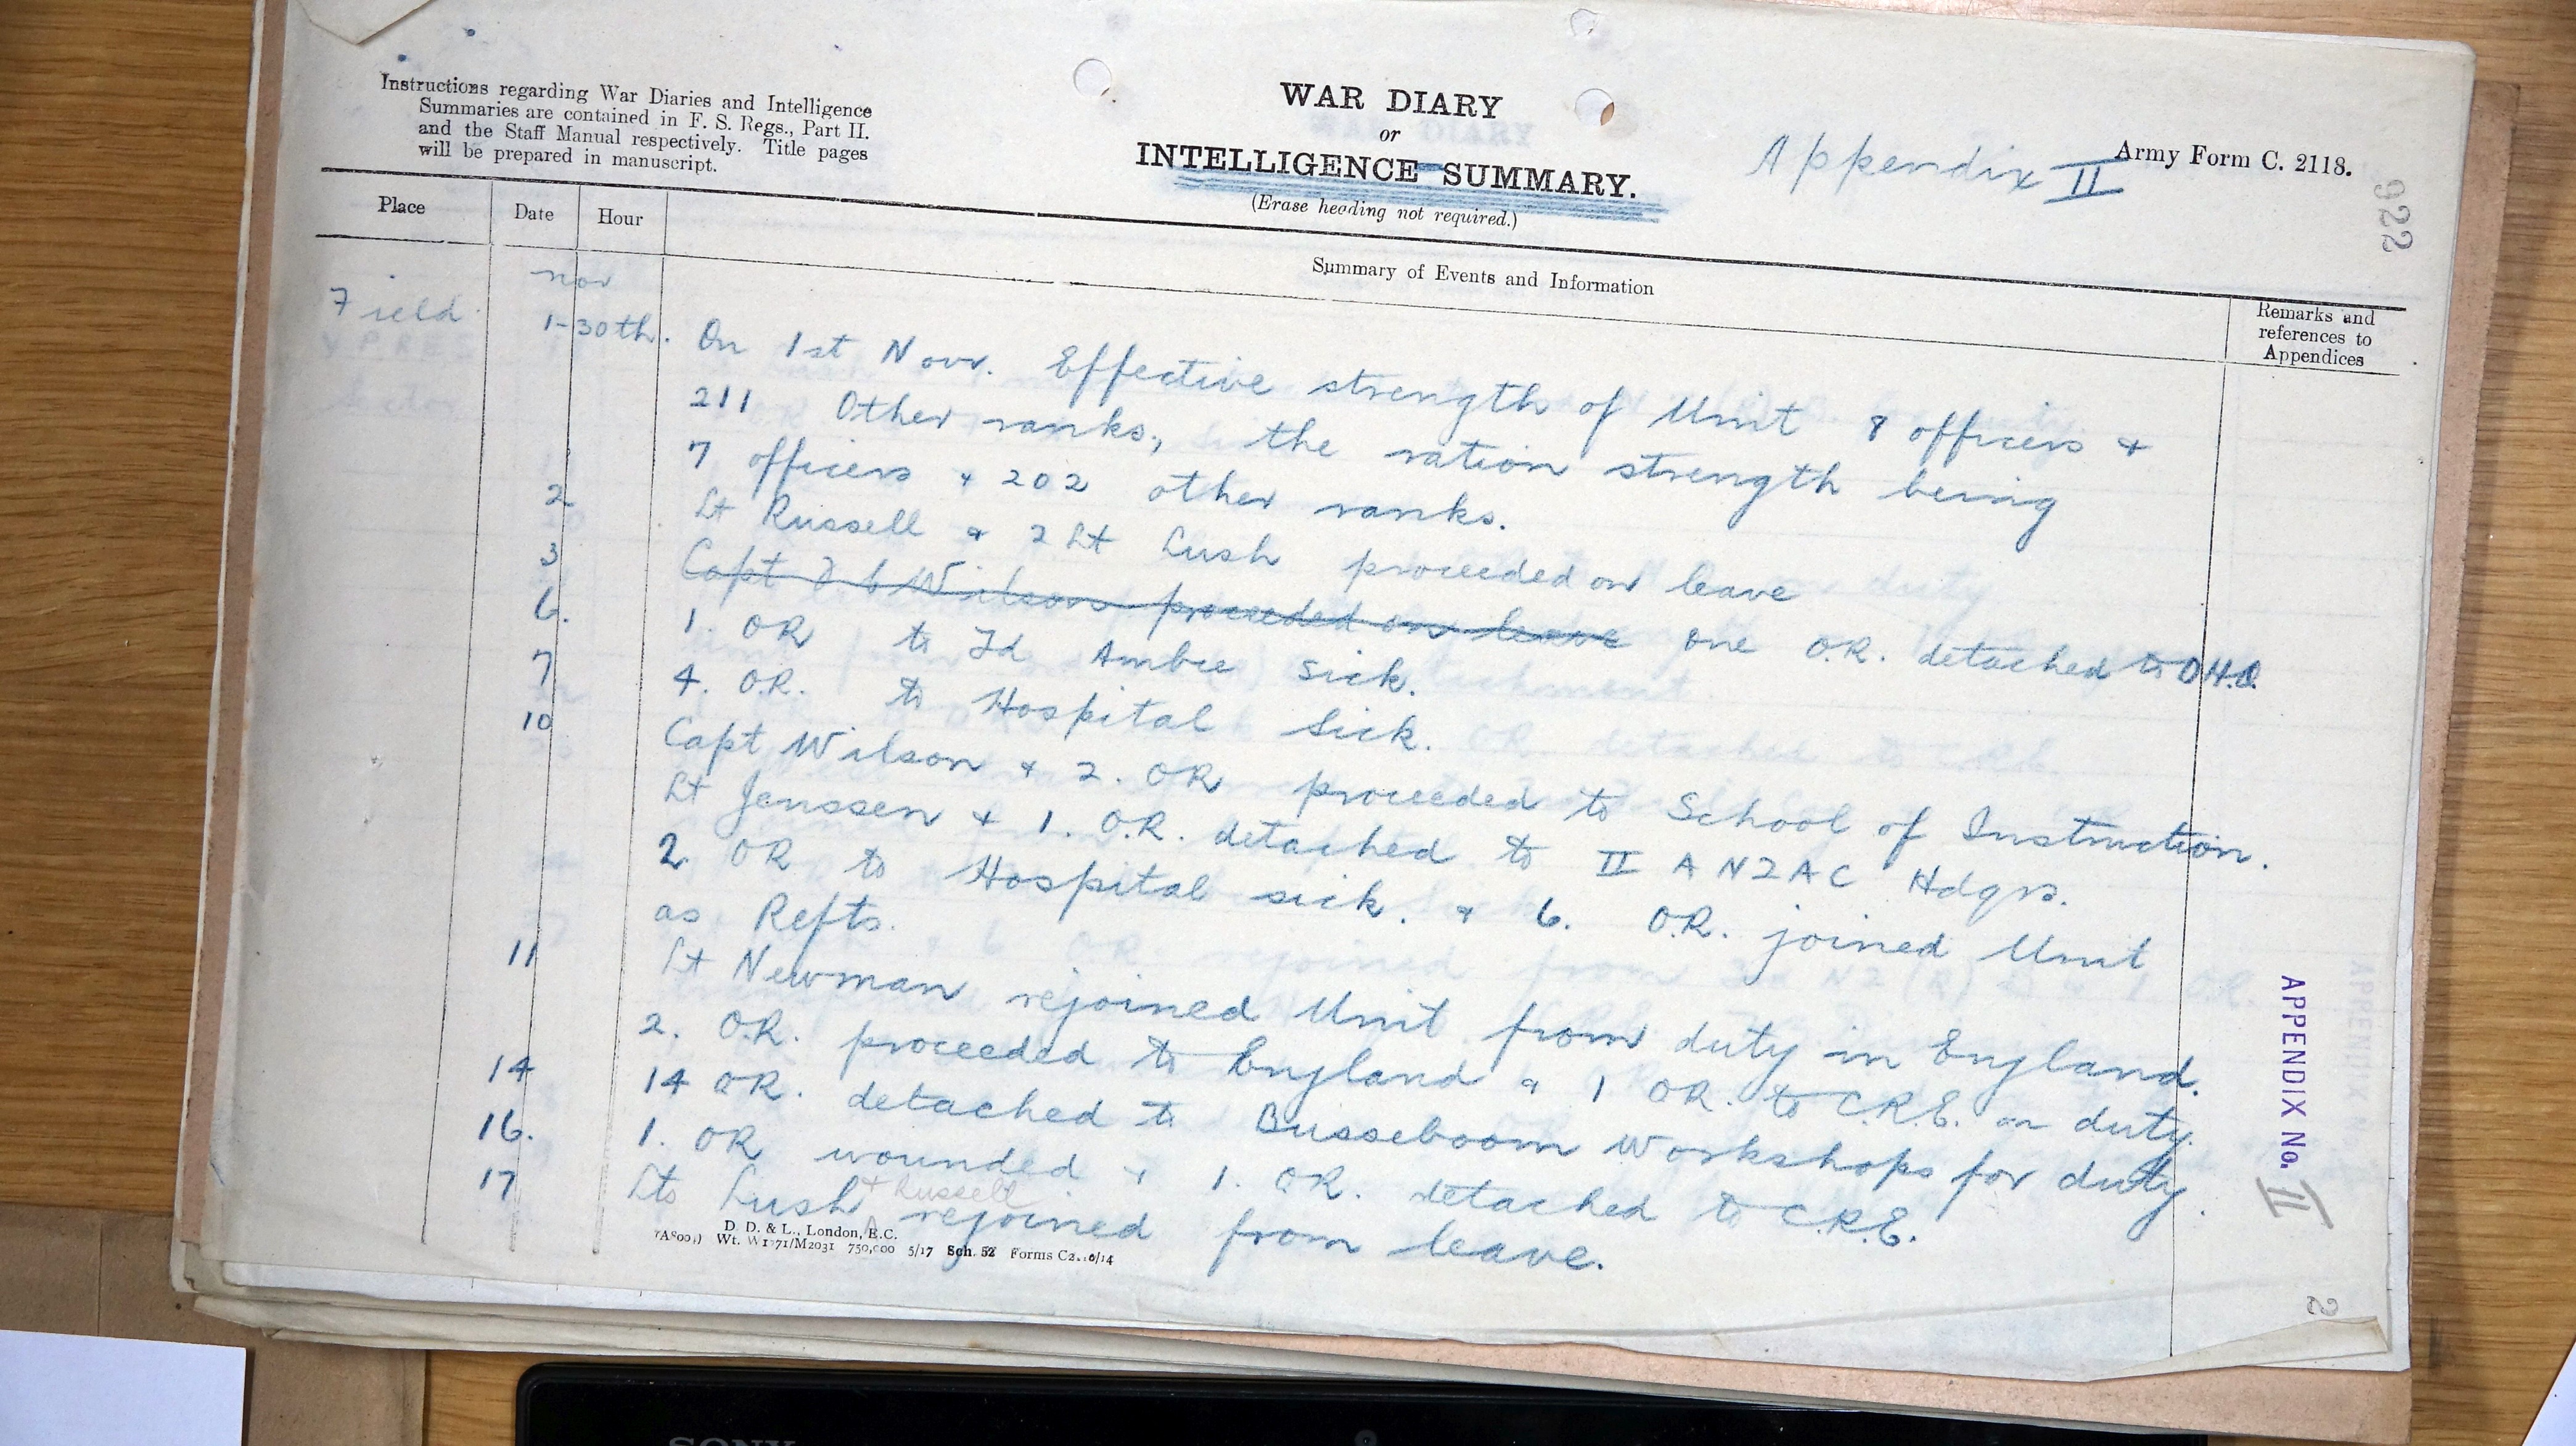 Instructions regarding War Diaries and Intelligence
Summaries are contained in F. S. Regs., Part II.
and the Staff Manual respectively. Title pages
will be prepared in manuscript.
WAR DIARY
or
INTELLIGENCE SUMMARY.
(Erase heading not required.)
Appendix II
Army Form C. 2118.
922
Place Date Hour
Summary of Events and Information
Remarks and
references to
Appendices
Nov
Field 1-30th. On 1st Novr. Effective strength of Unit 8 officers &
211 Other ranks, the ration strength being
7 officers & 202 other ranks.
2 Lt Russell & 2 Lt Lush proceeded on leave
3 Capt Wilson proceeded on leave one O.R. detached to D.H.Q.
6. 1. OR to Fd Ambce sick.
7 4. O.R. to Hospital sick.
10 Capt Wilson & 2. OR proceeded to School of Instruction.
Lt Jenssen & 1. O.R. detached to II ANZAC Hdqrs.
2. OR to Hospital sick. & 6. O.R. joined Unit
as Refts.
11 Lt Newman rejoined Unit from duty in England.
2. O.R. proceeded to England & 1 OR. to C.R.E. on duty.
14 14 OR. detached to Busseboom Workshops for duty.
16. 1. OR wounded & 1. OR. detached to C.R.E.
17 Lts Lush + Russell rejoined from leave.
D. D. & L., London, E.C.
Wt. W1771/M2031 750,000 5/17 Sch. 52 Forms
APPENDIX No. II
2
SONY